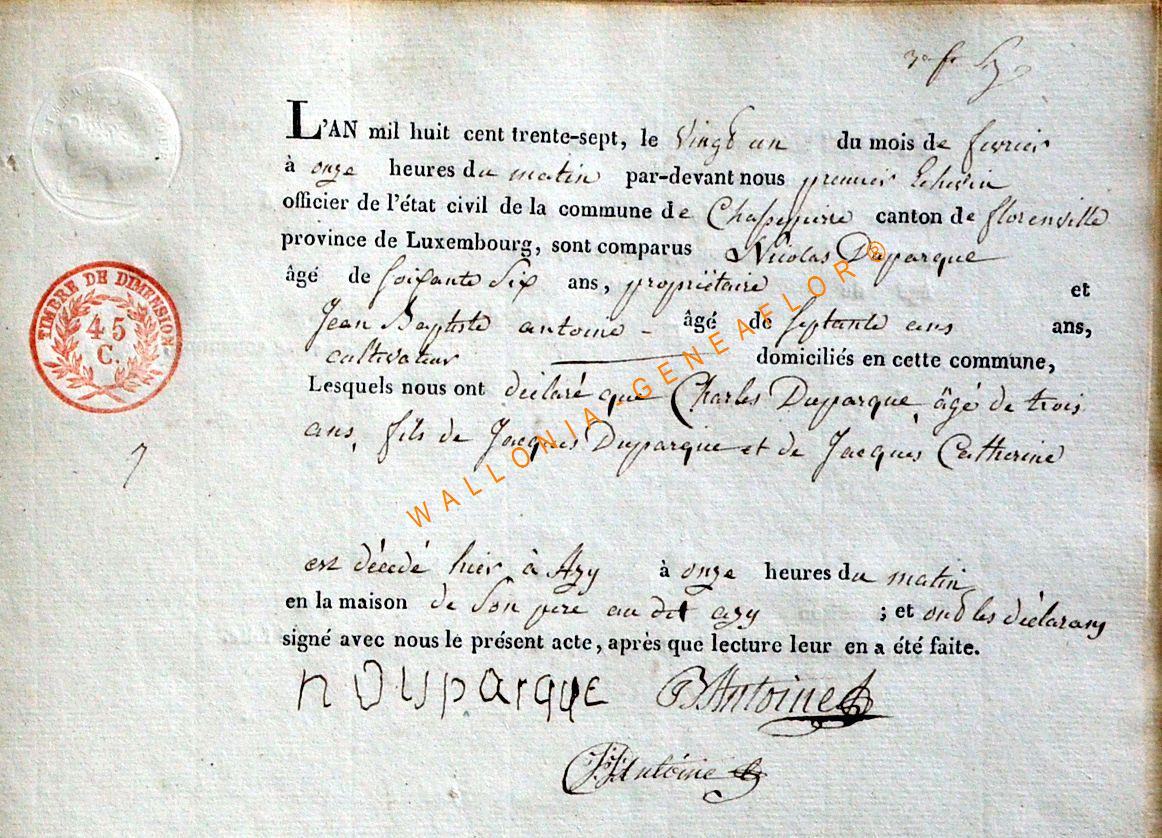 3e f
L'AN mil huit cent trente-sept, le Vingt un du mois de fevrier
à onze heures du matin par-devant nous premier Echevin
officier de l'état civil de la commune de Chassepierre canton de florenville
province de Luxembourg, sont comparus Nicolas Duparque
âgé de soixante Six ans, propriètaire et
Jean Baptiste antoine - âgé de septante ans ans,
cultivateur domiciliés en cette commune,
Lesquels nous ont déclaré que Charles Duparque, âgé de trois
ans, fils de Jacques Duparque et de Jacques Catherine
est décédé hier à Azy à onze heures du matin
en la maison de Son pere au dit azy ; et ont les déclarans
signé avec nous le présent acte, après que lecture leur en a été faite.
n Duparque JBAntoine
Antoine
TIMBRE DE DIMENSION
45
C.
7
WALLONIA-GENEAFLOR®